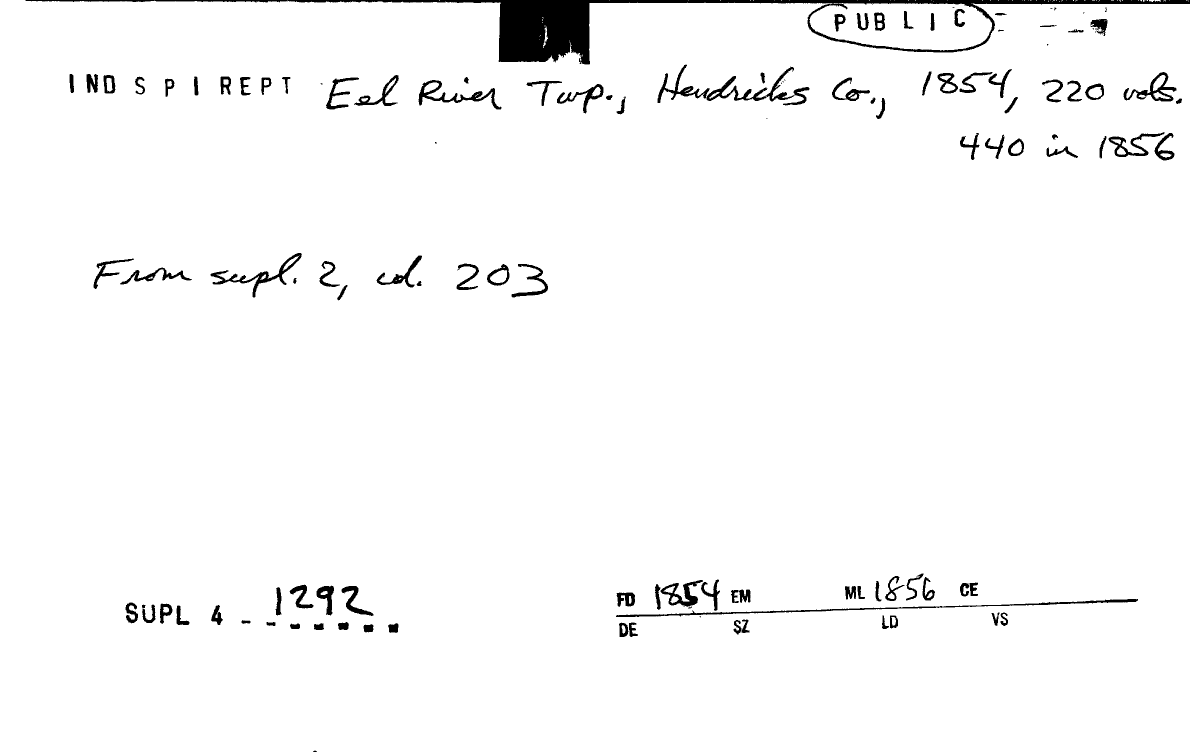 PUBLIC
INDSPIREPT Eel River Twp., Hendricks Co., 1854, 220 vols.
440 in 1856
From supl. 2, col. 203
SUPL 4 - 1292
FD 1854 EM ML 1856 CE
DE SZ LD VS